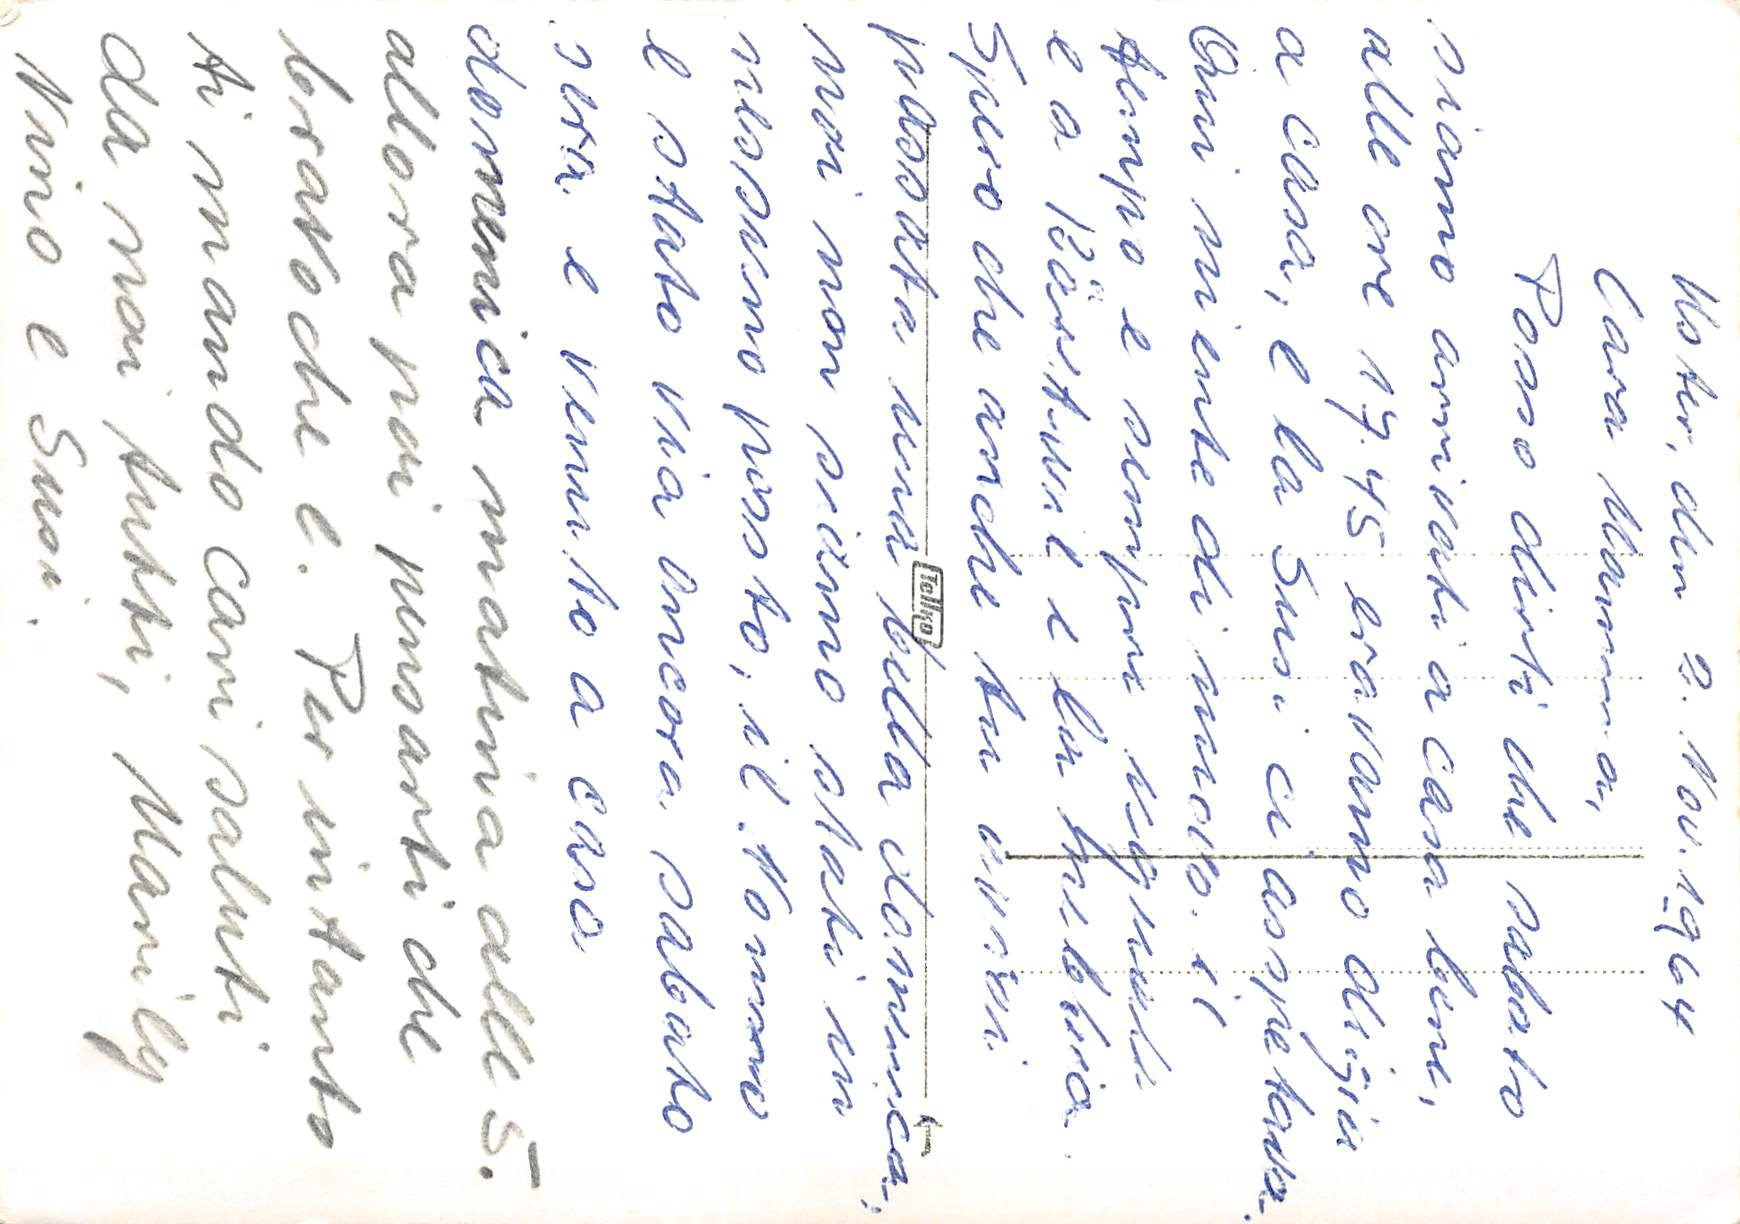 Uster, den 2. Nov. 1964
Cara Mamma,
Posso dirti che sabato
siamo arrivati a casa bene,
alle ore 17.45 eravamo di già
a casa, e la Susi ci asspetava.
Qui niente di nuovo. il
tempo e sempre uguale
e a Bürstuel e la nebbia.
Spero che anche tu avrai
passata una bella domenica,
noi non siamo stati in
nessuno possto, il Nonno
e stato via ancora sabato
sera e venuto a casa
domenica matina alle 5.
allora poi pensarti che
brasso che e. Per intanto
ti mando cari saluti
da noi tutti, Marily
Nino e Susi.
Telko